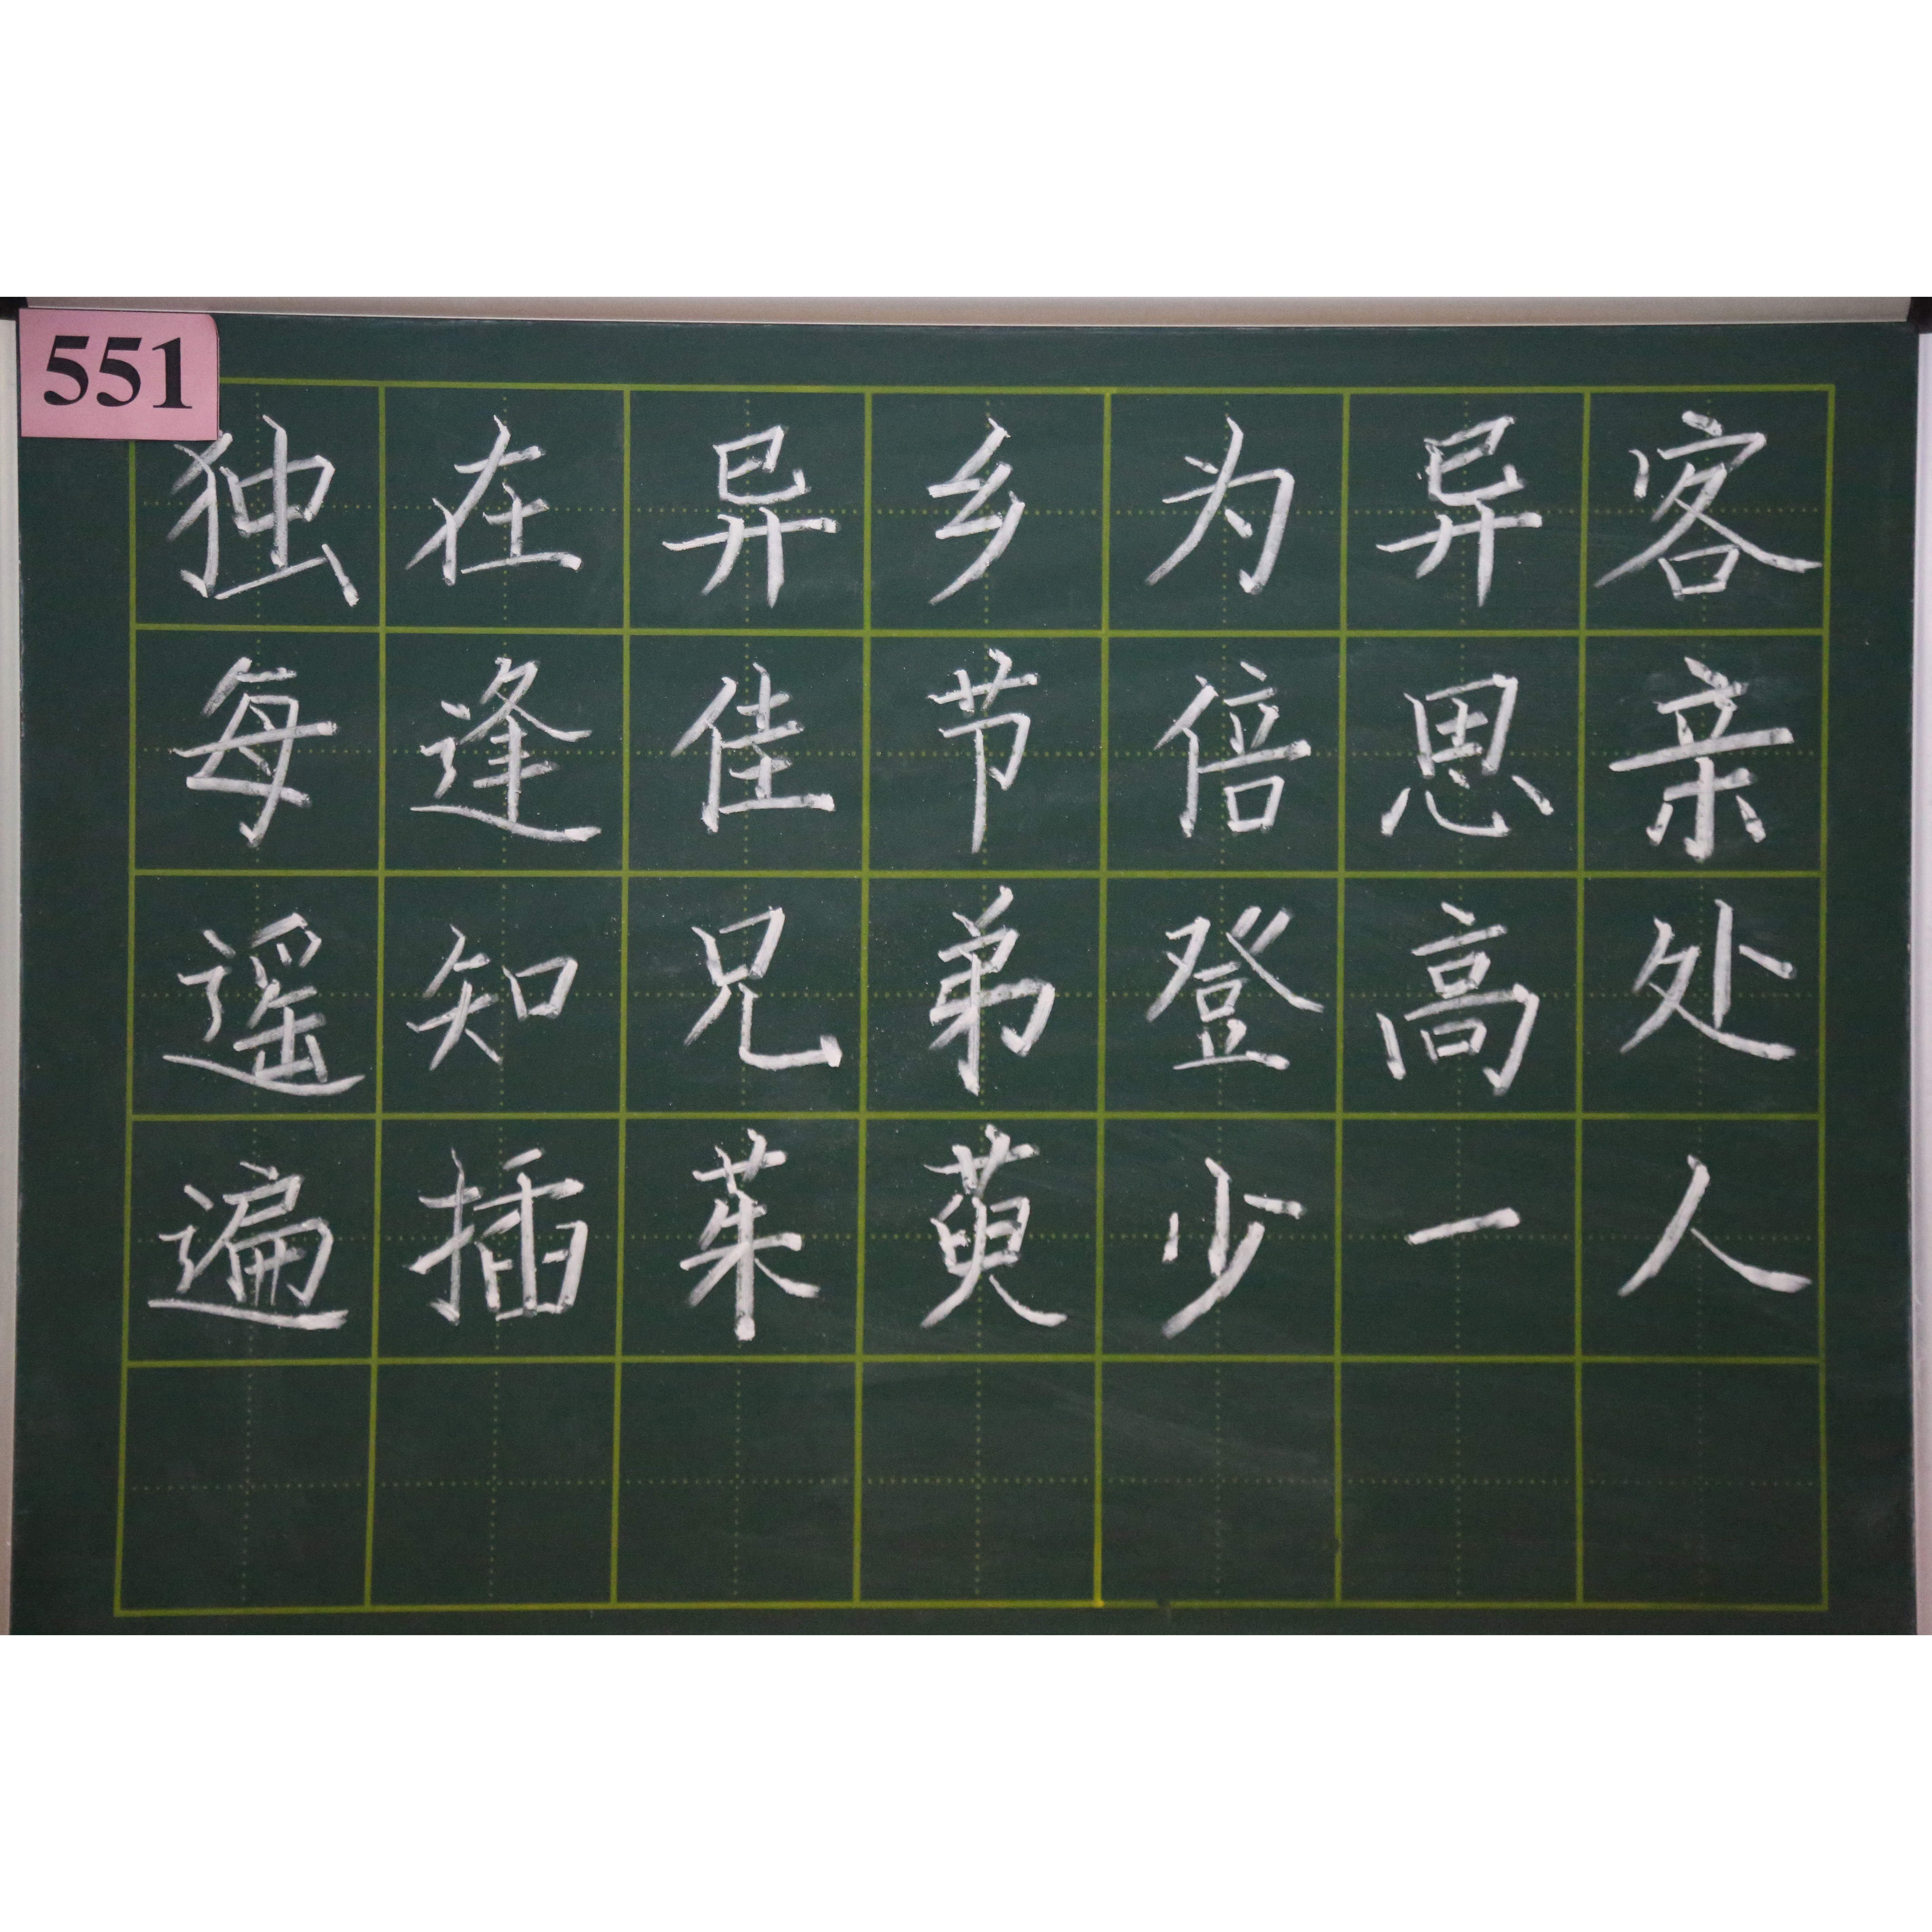 551
独在异乡为异客
每逢佳节倍思亲
遥知兄弟登高处
遍插茱萸少一人